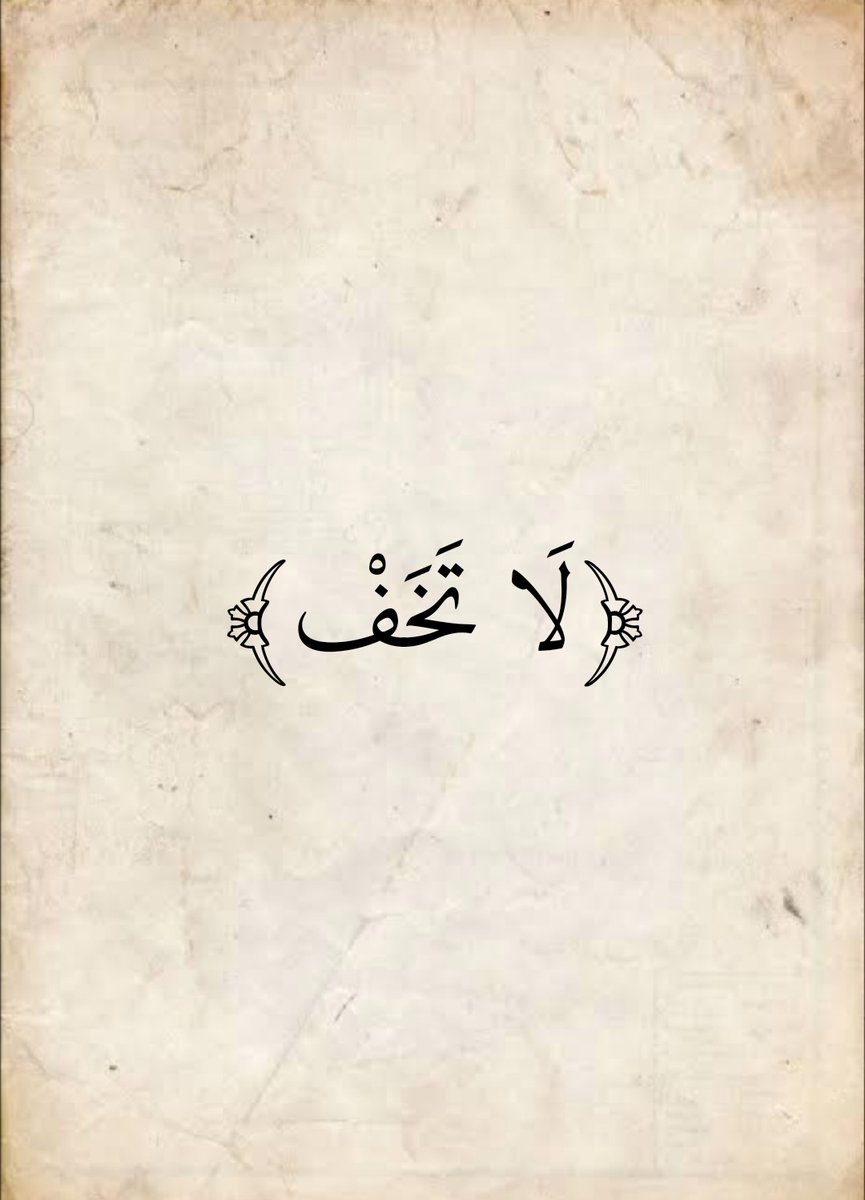 ﴿لَا تَخَفْ﴾